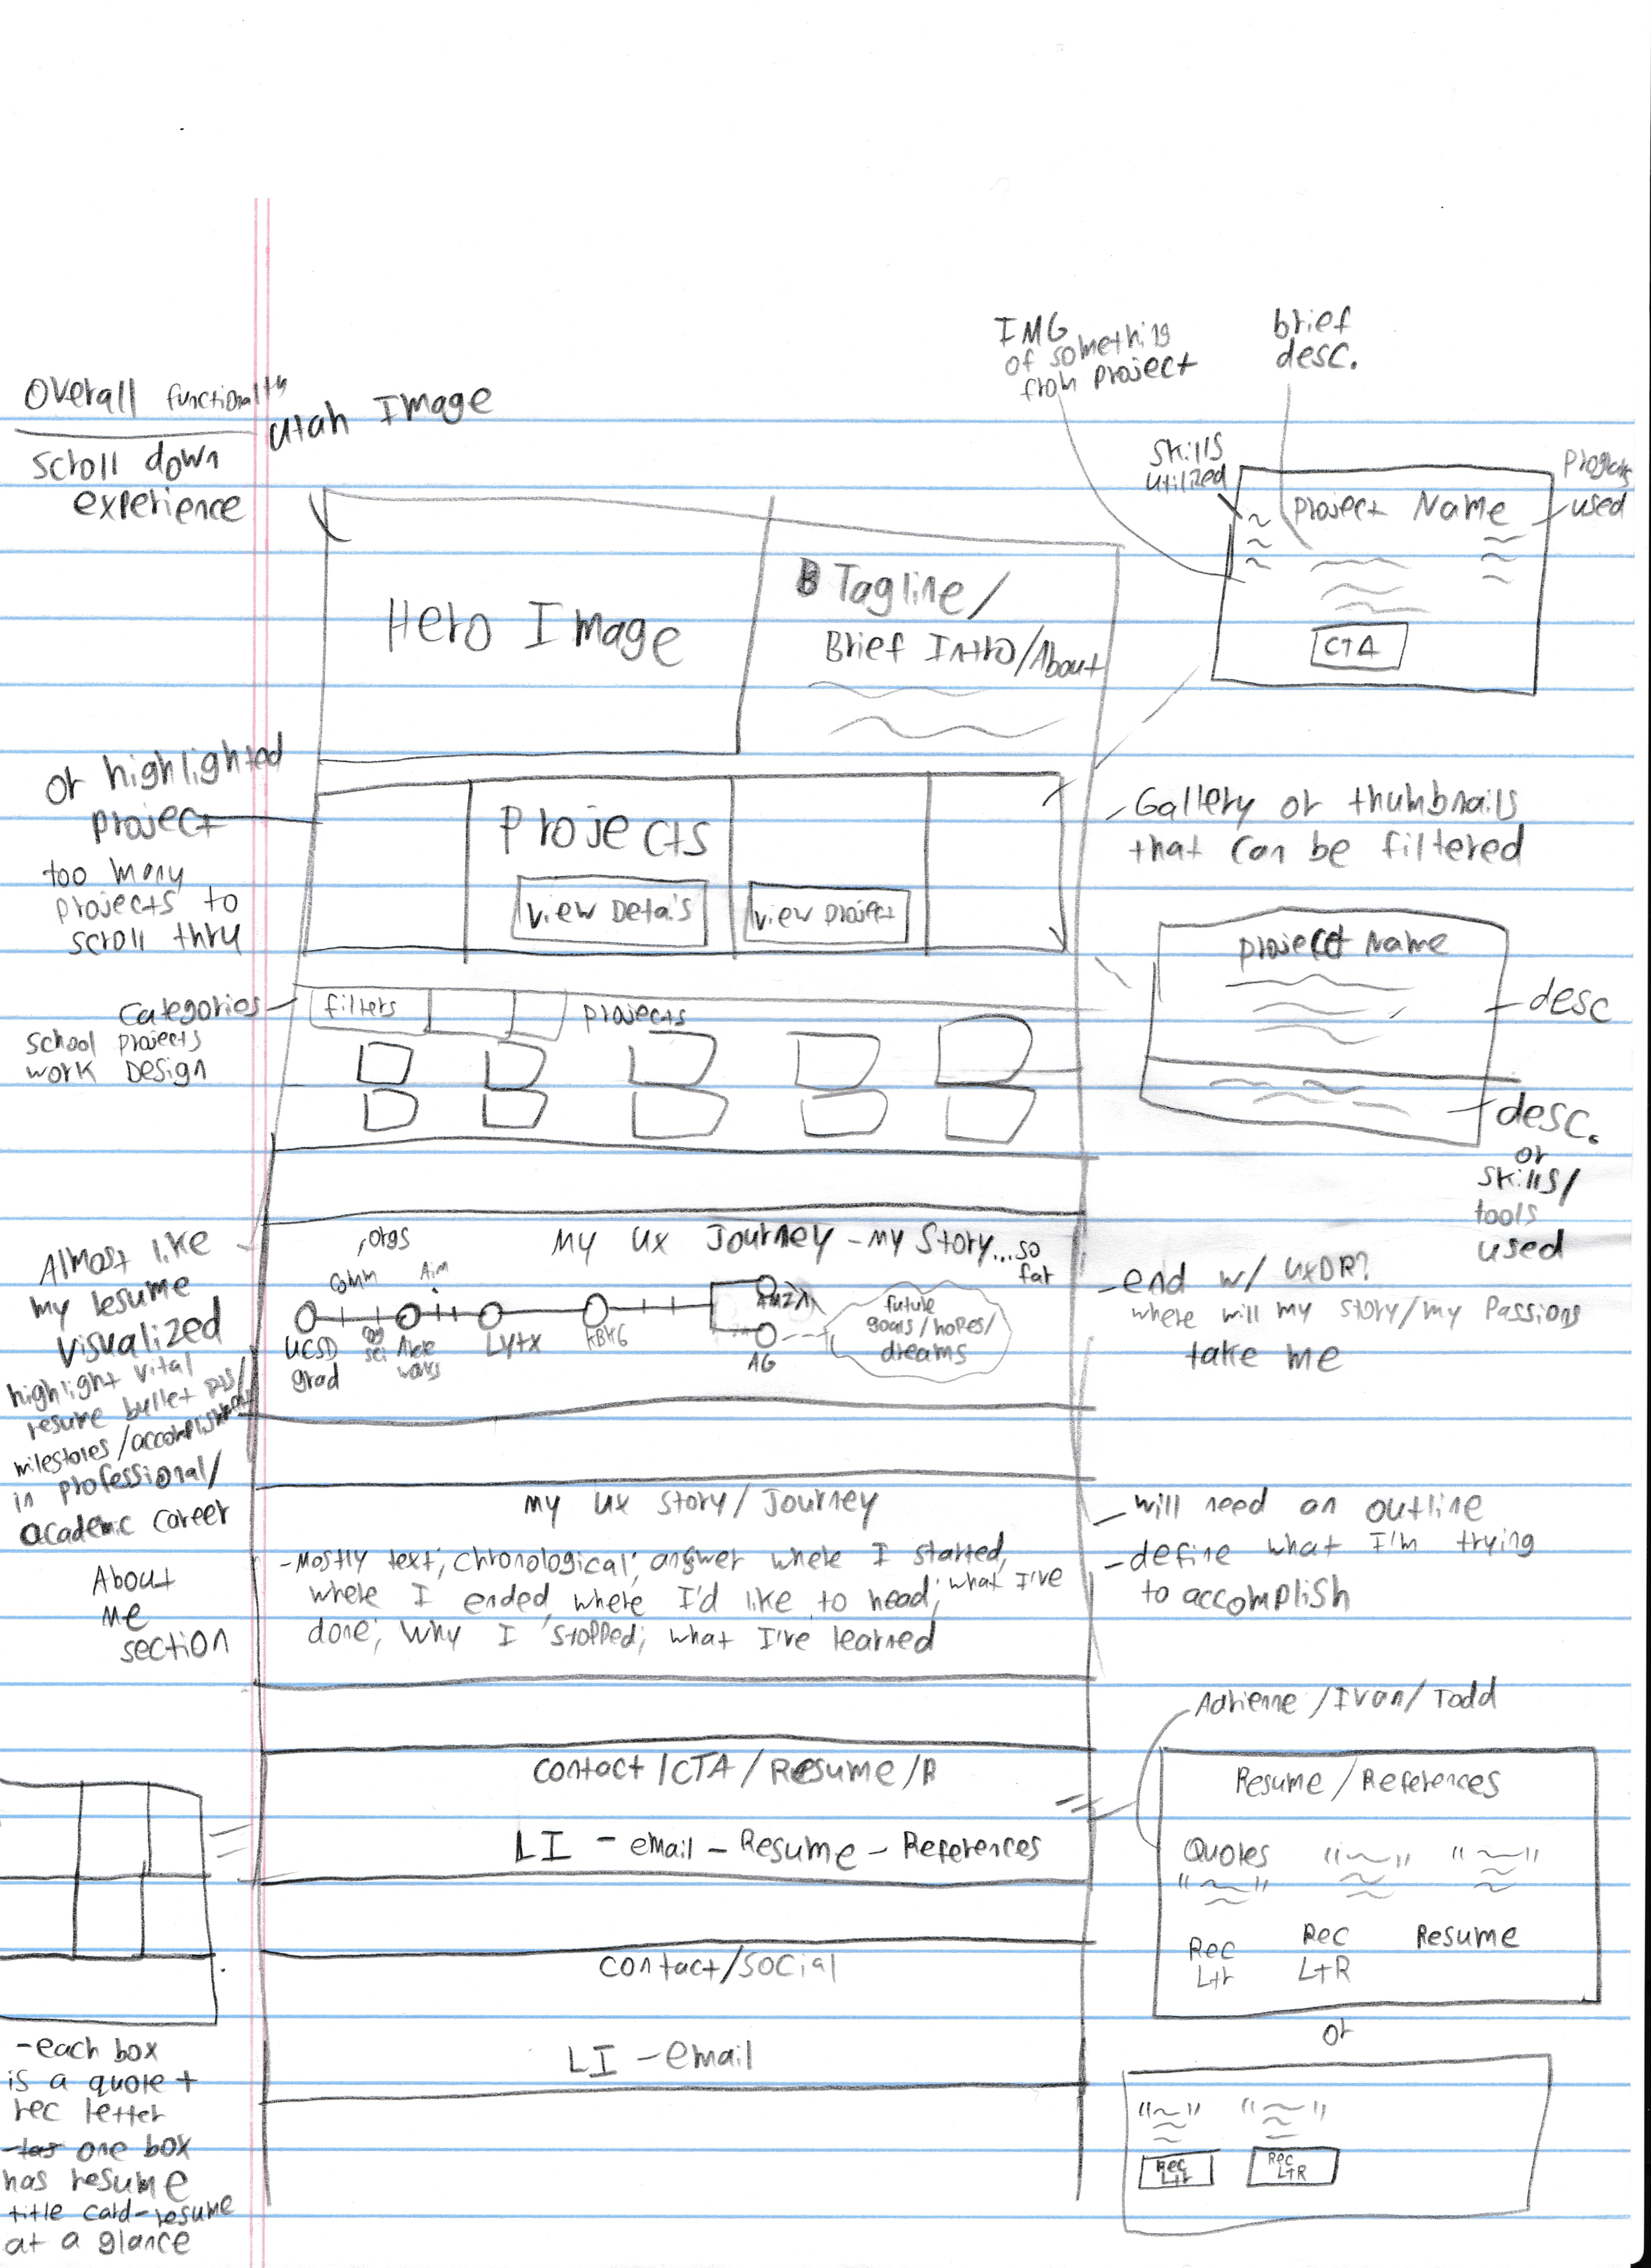 Overall functionality
scroll down
experience
Utah Image
IMG
of something
from project
brief
desc.
skills
utilized
programs
used
Project Name
CTA
Hero Image
Tagline/
Brief Intro/About
or highlighted
project
too many
projects to
scroll thru
Projects
View Details
View project
Gallery or thumbnails
that can be filtered
Project Name
desc
desc.
or
skills/
tools
used
Categories
school projects
work Design
filters
projects
Almost like
my resume
visualized
highlight vital
resume bullet pts/
milestones/accomplishments
in professional/
academic career
orgs
My UX Journey - My Story...so
far
Comm
Aim
UCSD
grad
cog
sci
works
Lytx
KBKG
AMZN
AG
future
goals/hopes/
dreams
-end w/ UXDR?
where will my story/my Passions
take me
About
me
section
My UX Story/Journey
-Mostly text; chronological; answer where I started,
where I ended, where I'd like to head; what I've
done; Why I stopped; what I've learned
-will need an outline
-define what I'm trying
to accomplish
Adrienne/Ivan/Todd
Contact/CTA/Resume/R
LI - email - Resume - References
Contact/Social
LI - email
-each box
is a quote +
rec letter
- one box
has resume
title card-resume
at a glance
Resume/References
Quotes
Rec
Ltr
Rec
LtR
Resume
or
Rec
Ltr
Rec
LtR